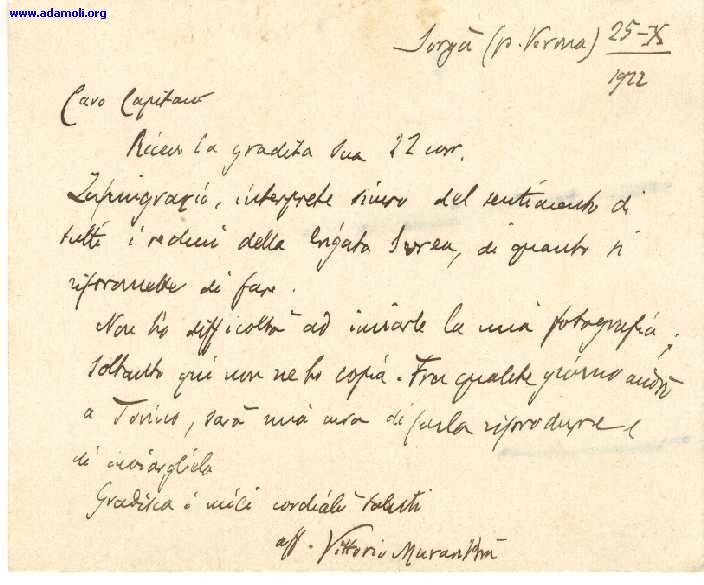 www.adamoli.org
Sorgà (p. Verona) 25-X
1922
Caro Capitano
Ricevo la gradita Sua 22 corr.
La ringrazio, interprete sicuro del sentimento di
tutti i reduci della brigata Ivrea, di quanto si
ripromette di fare.
Non ho difficoltà ad inviarle la mia fotografia,
soltanto qui non ne ho copia. Fra qualche giorno andrò
a Torino, sarà mia cura di farla riprodurre e
di inviargliela
Gradisca i miei cordiali saluti
aff. Vittorio